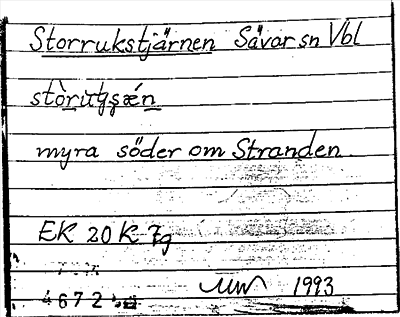 Storrukstjärnen Sävar sn Vbl
myra söder om Stranden
EK 20 K 7g
1993
4672